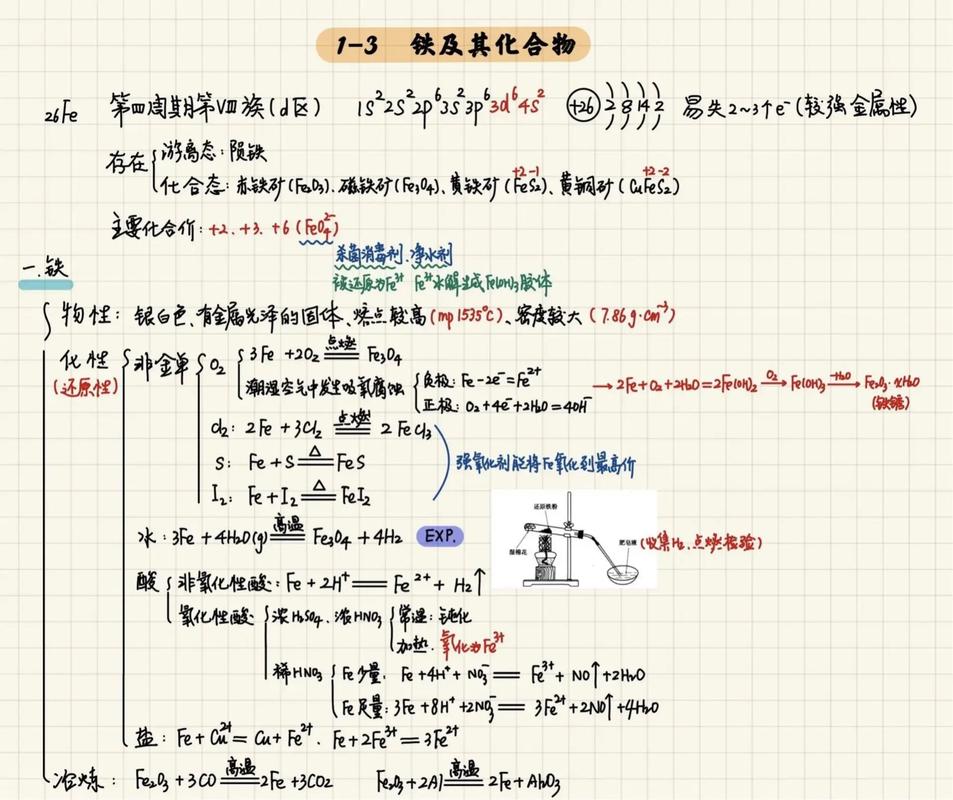 1-3 铁及其化合物
₂₆Fe 第四周期第VIII族(d区) 1s²2s²2p⁶3s²3p⁶3d⁶4s² +26 2 8 14 2 易失2~3个e⁻(较强金属性)
存在 游离态:陨铁
化合态:赤铁矿(Fe₂O₃)、磁铁矿(Fe₃O₄)、黄铁矿(FeS₂)、黄铜矿(CuFeS₂) +2 -1 +2 -2
主要化合价:+2、+3、+6(FeO₄²⁻)
杀菌消毒剂、净水剂
被还原为Fe³⁺ Fe³⁺水解生成Fe(OH)₃胶体
一.铁
物性:银白色、有金属光泽的固体、熔点较高(mp 1535℃)、密度较大(7.86g·cm⁻³)
化性(还原性) 非金单 O₂ 3Fe+2O₂ 点燃═ Fe₃O₄
潮湿空气中发生吸氧腐蚀 负极:Fe-2e⁻=Fe²⁺
正极:O₂+4e⁻+2H₂O=4OH⁻
→2Fe+O₂+2H₂O=2Fe(OH)₂ O₂→ Fe(OH)₃ -H₂O→ Fe₂O₃·xH₂O
(铁锈)
Cl₂:2Fe+3Cl₂ 点燃═ 2FeCl₃
S:Fe+S △═ FeS
I₂:Fe+I₂ △═ FeI₂
强氧化剂能将Fe氧化到最高价
水:3Fe+4H₂O(g) 高温═ Fe₃O₄+4H₂ EXP.
还原铁粉
湿棉花
肥皂液 (收集H₂、点燃检验)
酸 非氧化性酸:Fe+2H⁺═Fe²⁺+H₂↑
氧化性酸 浓H₂SO₄、浓HNO₃ 常温:钝化
加热:氧化为Fe³⁺
稀HNO₃ Fe少量:Fe+4H⁺+NO₃⁻═Fe³⁺+NO↑+2H₂O
Fe足量:3Fe+8H⁺+2NO₃⁻═3Fe²⁺+2NO↑+4H₂O
盐:Fe+Cu²⁺=Cu+Fe²⁺、Fe+2Fe³⁺=3Fe²⁺
冶炼:Fe₂O₃+3CO 高温═ 2Fe+3CO₂ Fe₂O₃+2Al 高温═ 2Fe+Al₂O₃